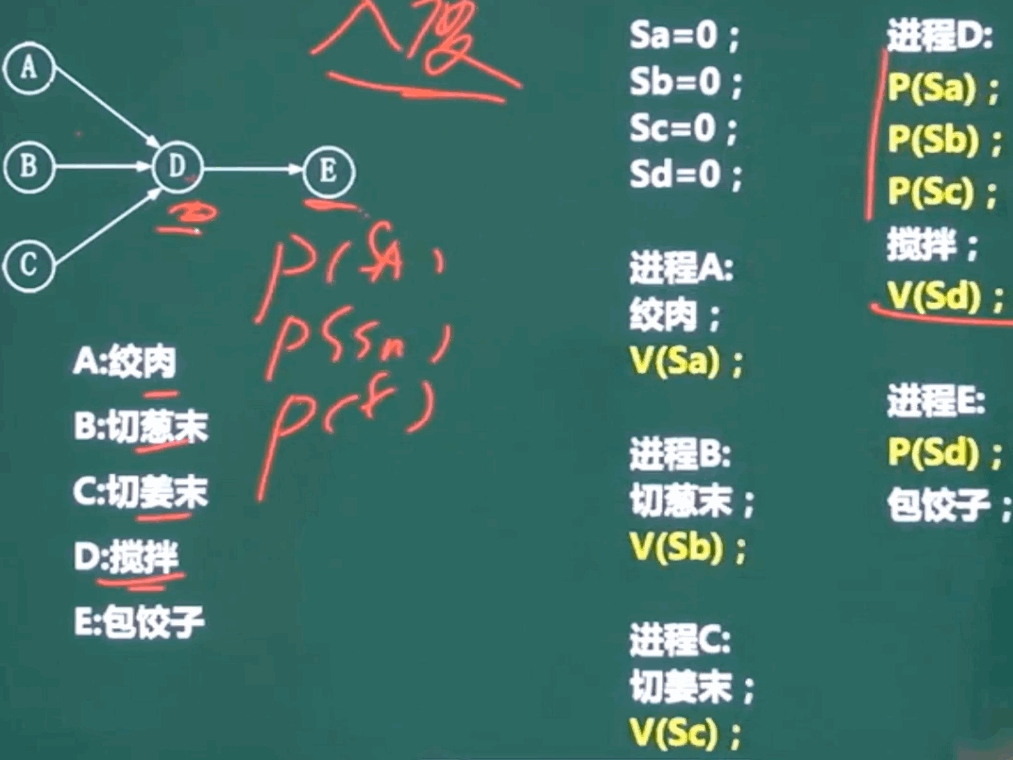 入度
A
B
D
E
C
P(SA)
P(SB)
P(S)
A:绞肉
B:切葱末
C:切姜末
D:搅拌
E:包饺子
Sa=0；
Sb=0；
Sc=0；
Sd=0；
进程A:
绞肉；
V(Sa)；
进程B:
切葱末；
V(Sb)；
进程C:
切姜末；
V(Sc)；
进程D:
P(Sa)；
P(Sb)；
P(Sc)；
搅拌；
V(Sd)；
进程E:
P(Sd)；
包饺子；